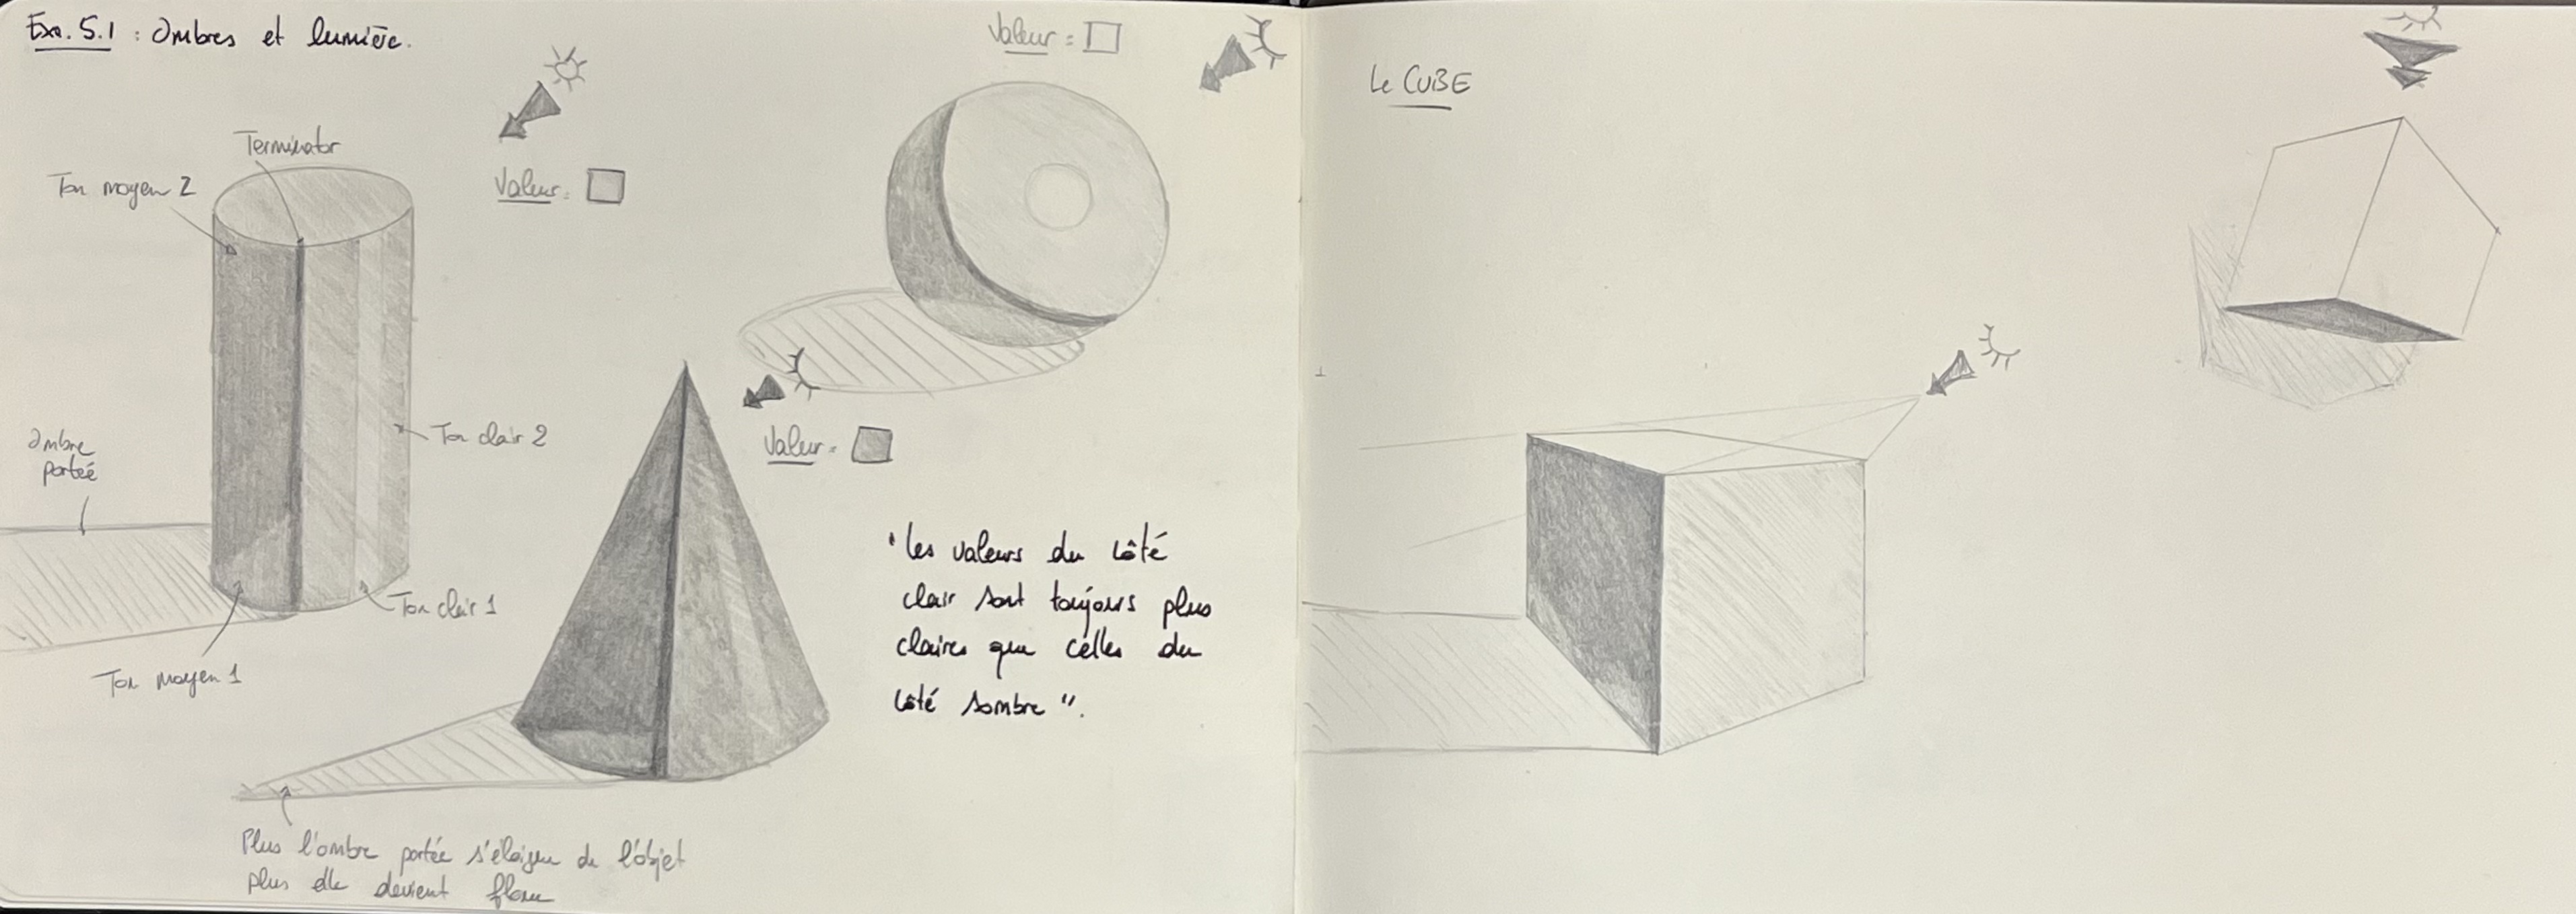 Exo. 5.1 : Ombres et lumière.
Valeur =
Terminator
Ton moyen 2
Valeur =
Ombre
portée
Ton clair 2
Ton clair 1
Ton moyen 1
Valeur =
"les valeurs du côté
clair sont toujours plus
claires que celles du
côté sombre".
Plus l'ombre portée s'éloigne de l'objet
plus elle devient floue
Le CUBE